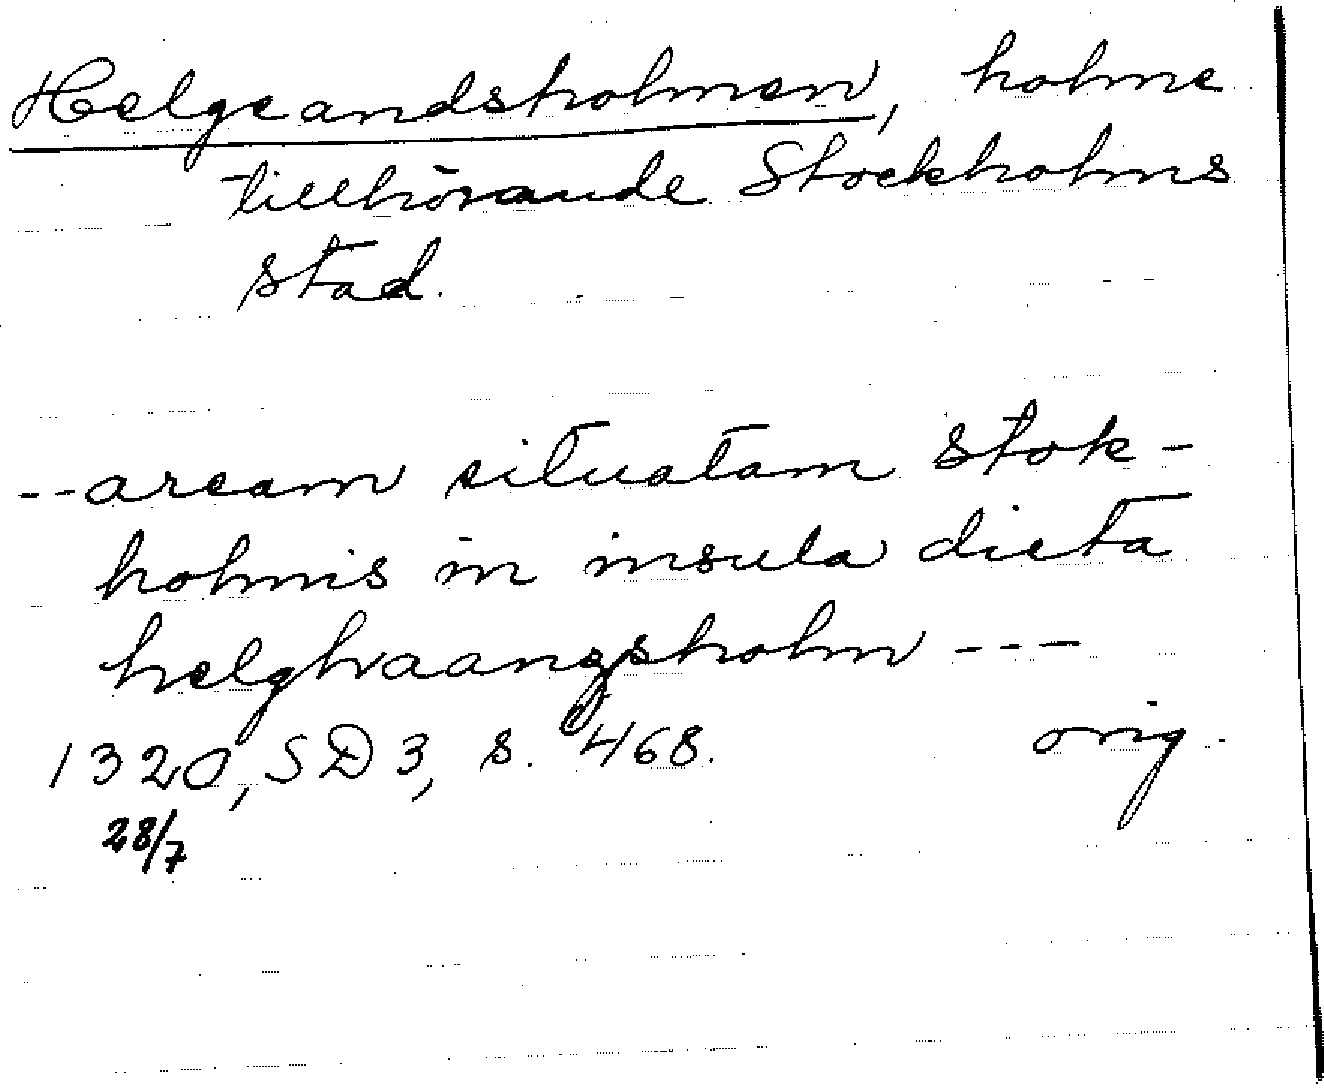 Helgeandsholmen, holme
tillhörande Stockholms
stad.
--aream situatam stok-
holmis in insula dicta
helghaangsholm ---
1320, SD 3, s. 468. orig.
28/7